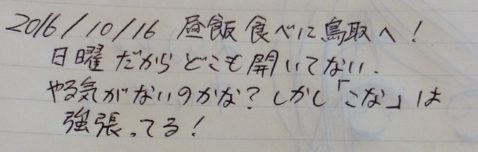 2016/10/16 昼飯食べに鳥取へ!
日曜だからどこも開いてない.
やる気がないのかな?しかし「こな」は
強張ってる!